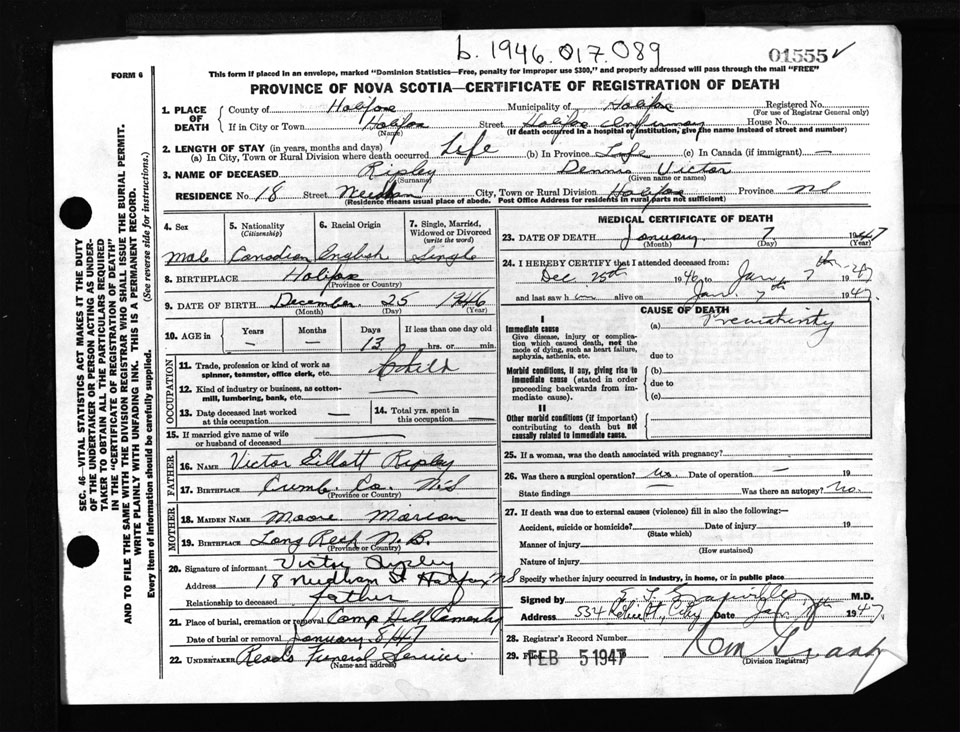 b. 1946.017.089
01555 ✓
FORM 6
This form if placed in an envelope, marked "Dominion Statistics—Free, penalty for improper use $300," and properly addressed will pass through the mail "FREE"
PROVINCE OF NOVA SCOTIA—CERTIFICATE OF REGISTRATION OF DEATH
SEC. 46—VITAL STATISTICS ACT MAKES IT THE DUTY
OF THE UNDERTAKER OR PERSON ACTING AS UNDER-
TAKER TO OBTAIN ALL THE PARTICULARS REQUIRED
IN THE "CERTIFICATE OF REGISTRATION OF DEATH"
AND TO FILE THE SAME WITH THE DIVISION REGISTRAR WHO SHALL ISSUE THE BURIAL PERMIT.
WRITE PLAINLY WITH UNFADING INK. THIS IS A PERMANENT RECORD.
Every item of Information should be carefully supplied. (See reverse side for instructions.)
1. PLACE OF DEATH
County of Halifax Municipality of Halifax Registered No.
(For use of Registrar General only)
If in City or Town Halifax Street Halifax Infirmary House No.
(Name) (If death occurred in a hospital or institution, give the name instead of street and number)
2. LENGTH OF STAY (in years, months and days)
(a) In City, Town or Rural Division where death occurred Life (b) In Province Life (c) In Canada (if immigrant) —
3. NAME OF DECEASED Ripley Dennis Victor
(Surname) (Given name or names)
RESIDENCE No. 18 Street Needham City, Town or Rural Division Halifax Province NS
(Residence means usual place of abode. Post Office Address for residents in rural parts not sufficient)
4. Sex
Male
5. Nationality
(Citizenship)
Canadian
6. Racial Origin
English
7. Single, Married,
Widowed or Divorced
(write the word)
Single
8. BIRTHPLACE Halifax
(Province or Country)
9. DATE OF BIRTH December 25 1946
(Month) (Day) (Year)
10. AGE in Years Months Days If less than one day old
— — 13 hrs. or min.
OCCUPATION
11. Trade, profession or kind of work as
spinner, teamster, office clerk, etc. Child
12. Kind of industry or business, as cotton-
mill, lumbering, bank, etc. —
13. Date deceased last worked
at this occupation —
14. Total yrs. spent in
this occupation —
15. If married give name of wife
or husband of deceased —
FATHER
16. NAME Victor Eillott Ripley
17. BIRTHPLACE Cumb. Co. NS
(Province or Country)
MOTHER
18. MAIDEN NAME Moore Marion
19. BIRTHPLACE Long Reach N.B.
(Province or Country)
20. Signature of informant Victor Ripley
Address 18 Needham St Halifax NS
Relationship to deceased father
21. Place of burial, cremation or removal Camp Hill Cemetery
Date of burial or removal January 8/47
22. UNDERTAKER Funeral Service
(Name and address)
MEDICAL CERTIFICATE OF DEATH
23. DATE OF DEATH January 7 1947
(Month) (Day) (Year)
24. I HEREBY CERTIFY that I attended deceased from:
Dec 25th 1946 to Jan. 7th 1947
and last saw him alive on Jan. 7th 1947.
CAUSE OF DEATH
I
Immediate cause
Give disease, injury or complica-
tion which caused death, not the
mode of dying, such as heart failure,
asphyxia, asthenia, etc.
(a) Prematurity
due to
Morbid conditions, if any, giving rise to
immediate cause (stated in order
proceeding backwards from im-
mediate cause).
(b)
due to
(c)
II
Other morbid conditions (if important)
contributing to death but not
causally related to immediate cause.
25. If a woman, was the death associated with pregnancy?
26. Was there a surgical operation? no. Date of operation — 19
State findings — Was there an autopsy? no.
27. If death was due to external causes (violence) fill in also the following:—
Accident, suicide or homicide? Date of injury 19
(State which)
Manner of injury
(How sustained)
Nature of injury
Specify whether injury occurred in industry, in home, or in public place
Signed by M.D.
Address 534 City Date Jan. 1947.
28. Registrar's Record Number
29. Filed FEB 5 1947
(Division Registrar)